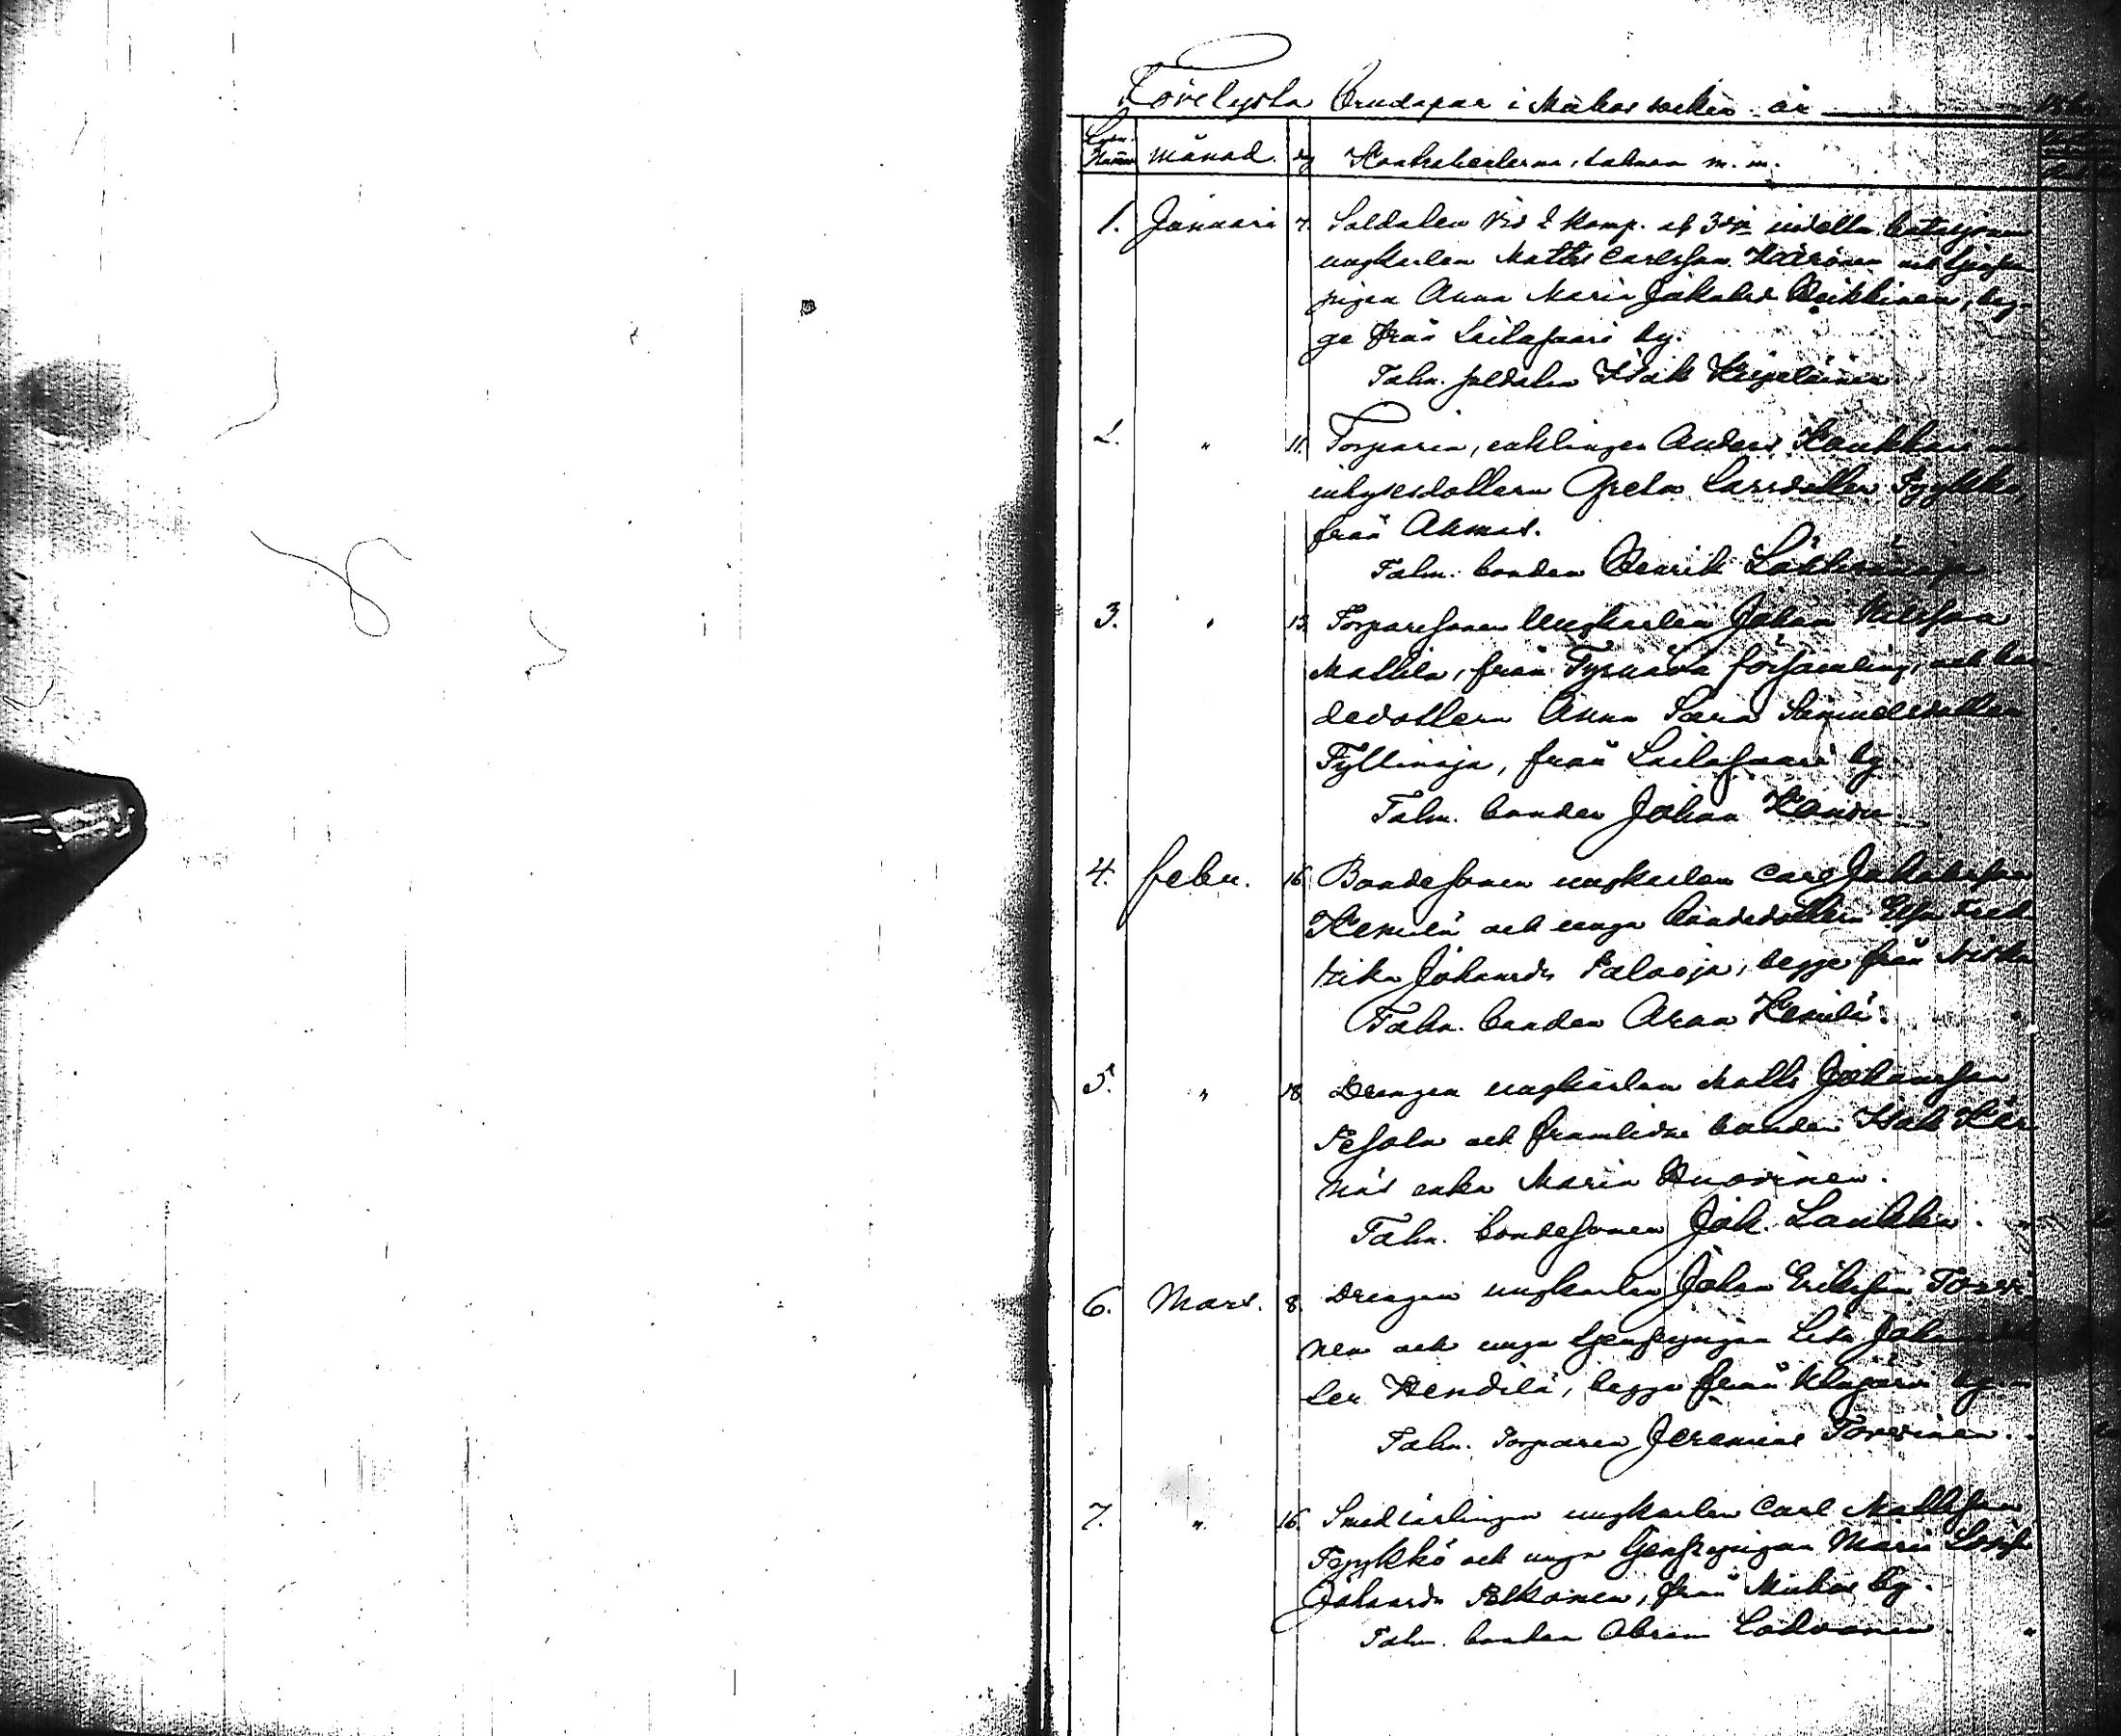 Förelysta Brudapar i Muhos socken år
Månad. dag Kontrahenterne, talman m. m.
1. Januari 7. Soldaten vid 2 Komp. af indelta bataljonen
ungkarlen Matts Carlsson Kärönen och
pigan Anna Maria Jakobsd. Heikkinen, beg-
ge från Laitasaari by.
Talm. soldaten Isak Keipeläinen
2. " 11. Torparen, enklingen Anders Kaukkari
inhysesdottern Greta Larsdotter Pyykkö,
från Ahmas.
Talm. bonden Henrik
3. " 13. Torparesonen Ungkarlen Johan Nilsson
Mattila, från Tyrnävä församling, och bon-
dedottern Anna Sara Samuelsdotter
Tyllinoja, från Laitasaari by
Talm. bonden Johan
4. febru. 16 Bondesonen ungkarlen Carl Jakobsson
Kemilä och unga bondedottern Elsa Fred-
rika Johansdr Palooja, begge från Niska
Talm. bonden Aron Kemilä.
5. " 18 Drengen ungkarlen Matts Johansson
Pesola och framlidne bonden Isak
enka Maria Huovinen.
Talm. bondesonen Joh. Laukka.
6. Mars. 8. Drengen ungkarlen Johan Eriksson Torvi-
nen och unga tjenstepigan Lisa
ter Hendilä, begge från by
Talm. Torparen Jeremias Torvinen.
7. " 16. Smedlärlingen ungkarlen Carl Mattsson
Pyykkö och unga tjenstepigan Maria Lovisa
Johansdr Pelkonen, från Muhos by.
Talm. bonden Abram